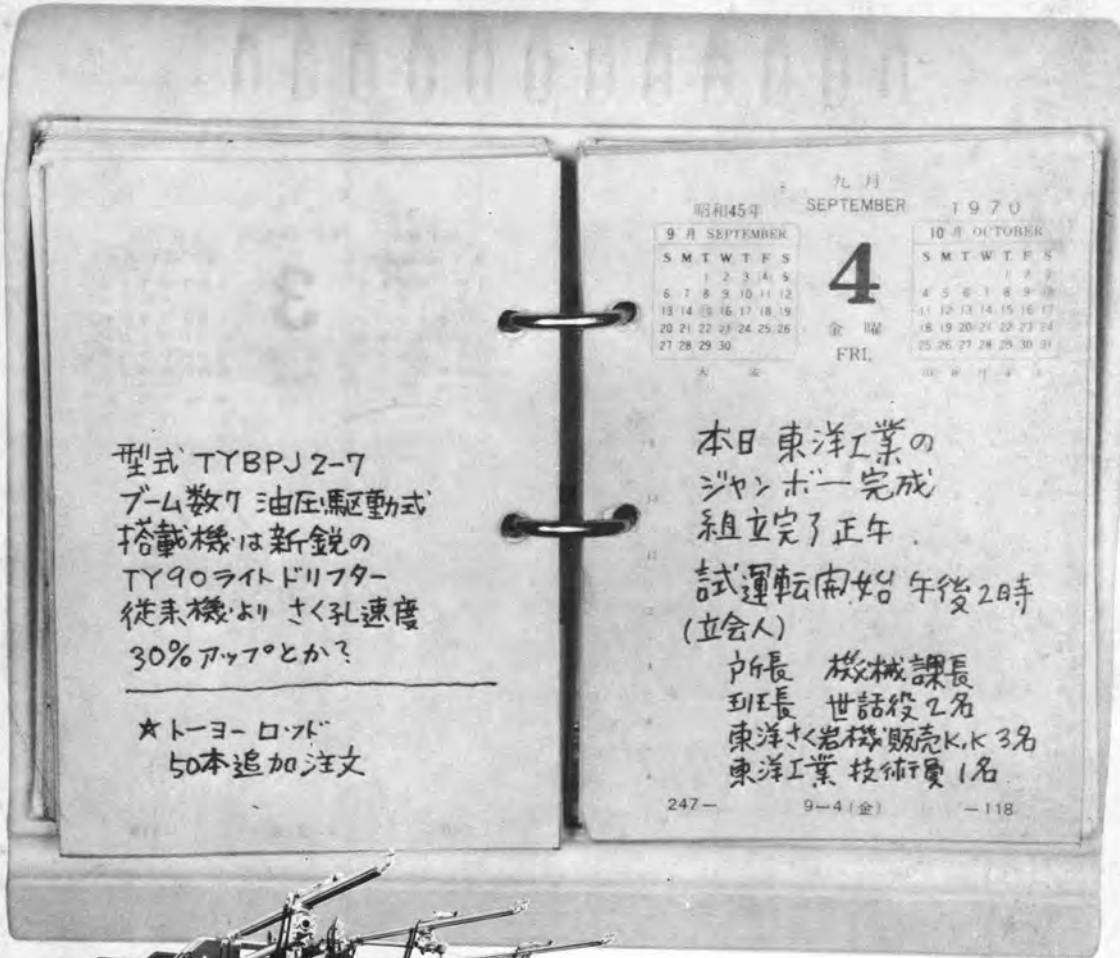 型式 TYBPJ 2-7
ブーム数7 油圧駆動式
搭載機は新鋭の
TY90ライトドリフター
従来機より さく孔速度
30%アップとか?
☆トーヨーロッド
50本追加注文
九月
昭和45年 SEPTEMBER 1970
9月 SEPTEMBER
S M T W T F S
1 2 3 4 5
6 7 8 9 10 11 12
13 14 15 16 17 18 19
20 21 22 23 24 25 26
27 28 29 30
4
金曜
FRI.
10月 OCTOBER
S M T W T F S
1 2 3
4 5 6 7 8 9 10
11 12 13 14 15 16 17
18 19 20 21 22 23 24
25 26 27 28 29 30 31
本日 東洋工業の
ジャンボー完成
組立完了正午
試運転開始 午後2時
(立会人)
所長 機械課長
班長 世話役2名
東洋さく岩機販売K.K 3名
東洋工業 技術員 1名
247- 9-4(金) -118